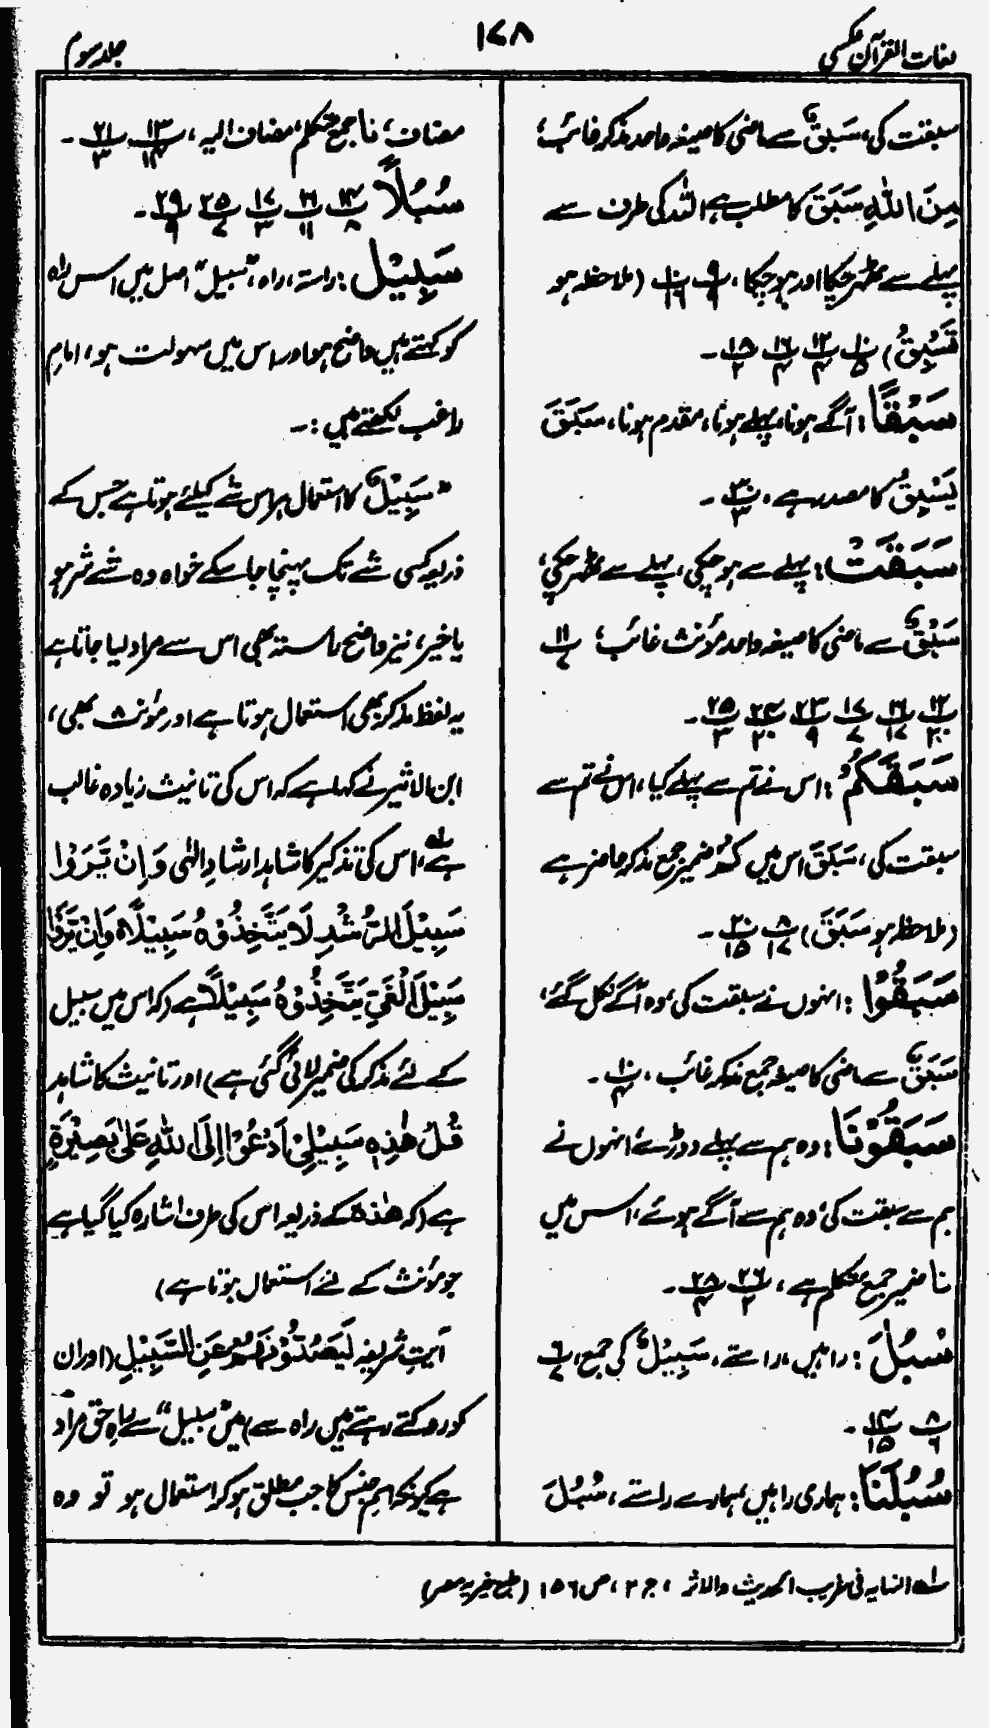 لغات القرآن عکسی
۱۷۸
جلد سوم
سبقت کی، سَبْقٌ سے ماضی کا صیغہ واحد مذکر غائب؛
مِنَ اللّٰهِ سَبَقَ کا مطلب ہے اللہ کی طرف سے
پہلے سے ٹھہر چکا اور ہو چکا، (ملاحظہ ہو
تَسْبِقُ) ۔
سَبْقًا: آگے ہونا، پہلے ہونا، مقدم ہونا، سَبَقَ
یَسْبِقُ کا مصدر ہے، ۔
سَبَقَتْ: پہلے سے ہو چکی، پہلے سے ٹھہر چکی،
سَبْقٌ سے ماضی کا صیغہ واحد مؤنث غائب؛ پ۱۱/۷
پ۱۲/۲۰ پ۱۶/۱۷ پ۱۷/۷ پ۲۳/۹ پ۲۴/۲۰ پ۲۵/۳ ۔
سَبَقَكُمْ: اس نے تم سے پہلے کیا، اس نے تم سے
سبقت کی، سَبَقَ اس میں كُمْ ضمیر جمع مذکر حاضر ہے
(ملاحظہ ہو سَبَقَ) پ۸/۱۷ پ۲۰/۱۵ ۔
سَبَقُوْا: انہوں نے سبقت کی، وہ آگے نکل گئے،
سَبْقٌ سے ماضی کا صیغہ جمع مذکر غائب، پ۱۰/۴ ۔
سَبَقُوْنَا: وہ ہم سے پہلے دوڑے، انہوں نے
ہم سے سبقت کی، وہ ہم سے آگے ہوئے، اس میں
نا ضمیر جمع متکلم ہے، پ۲۶/۲ پ۲۸/۴ ۔
سُبُلَ: راہیں، راستے، سَبِیْلٌ کی جمع، پ۶/۷
پ۸/۶ پ۱۴/۱۵ ۔
سُبُلَنَا: ہماری راہیں، ہمارے راستے، سُبُلَ
مضاف، نا جمع متکلم، مضاف الیہ، پ۱۳/۱۴ پ۲۱/۳ ۔
سُبُلًا پ۱۴/۸ پ۱۶/۱۱ پ۱۷/۳ پ۲۵/۷ پ۲۹/۹ ۔
سَبِیْلٌ: راستہ، راہ، "سبیل" اصل میں اس راہ
کو کہتے ہیں جو واضح ہو اور اس میں سہولت ہو، امام
راغب لکھتے ہیں :۔
"سَبِیْلٌ کا استعمال ہر اس شے کیلئے ہوتا ہے جس کے
ذریعہ کسی شے تک پہنچا جا سکے خواہ وہ شے شر ہو
یا خیر، نیز واضح راستہ بھی اس سے مراد لیا جاتا ہے
یہ لفظ مذکر بھی استعمال ہوتا ہے اور مؤنث بھی،
ابن الاثیر نے کہا ہے کہ اس کی تانیث زیادہ غالب
ہے،لہ اس کی تذکیر کا شاہد ارشاد الٰہی وَاِنْ یَّرَوْا
سَبِیْلَ الرُّشْدِ لَا یَتَّخِذُوْهُ سَبِیْلًا وَاِنْ یَّرَوْا
سَبِیْلَ الْغَیِّ یَتَّخِذُوْهُ سَبِیْلًا ہے (کہ اس میں سبیل
کے لئے مذکر کی ضمیر لائی گئی ہے) اور تانیث کا شاہد
قُلْ هٰذِهٖ سَبِیْلِیْ اَدْعُوْا اِلَی اللّٰهِ عَلٰی بَصِیْرَةٍ
ہے (کہ هٰذِهٖ کے ذریعہ اس کی طرف اشارہ کیا گیا ہے
جو مؤنث کے لئے استعمال ہوتا ہے)
آیتِ شریفہ لَیَصُدُّوْنَهُمْ عَنِ السَّبِیْلِ (اور ان
کو روکتے رہتے ہیں راہ سے) میں "سبیل" سے راہِ حق مراد
ہے کیونکہ اسم جنس کا جب مطلق ہو کر استعمال ہو تو وہ
لہ النہایہ فی غریب الحدیث والاثر، ج ۲، ص ۱۵۶ (طبع خیریہ مصر)